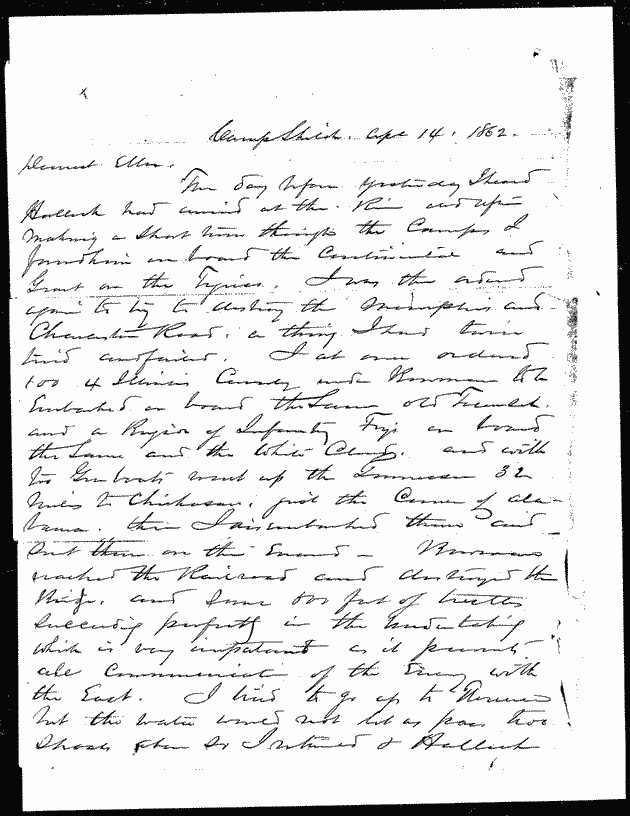 Camp Shiloh. Apl 14. 1862.
Dearest Ellen.
The day before yesterday I heard
Halleck had arrived at the River and after
making a short turn through the Camps I
found him on board the Continental and
Grant on the Tigress. I was then ordered
again to try to destroy the Memphis and
Charleston Road, a thing I had twice
tried and failed. I at once ordered
100 4 Illinois Cavalry under Bowman to be
Embarked on board the Same old Tecumseh.
and a Brigade of Infantry Fry's on board
the Same and the White Cloud. and with
two Gunboats went up the Tennessee 32
miles to Chickasaw, just the Corner of Ala-
bama. then I disembarked them and
sent them on their Errand - Bowman
reached the Railroad and destroyed the
Bridge. and Some 500 feet of trestles
Succeeding perfectly in the undertaking
which is very important as it prevents
all Communication of the Enemy with
the East. I tried to go up to Florence
but the water would not let us pass two
Shoals so I returned &amp; Halleck